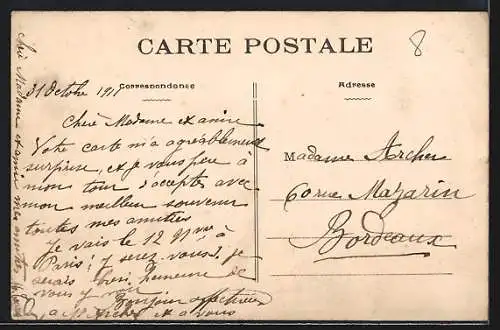 CARTE POSTALE
8
Correspondance
Adresse
31 Octobre 1911
Chère Madame et amie
Votre carte m'a agréablement
surprise, et je vous prie à
mon tour d'accepter avec
mon meilleur souvenir
toutes mes amitiés
Je vais le 12 9bre à
Paris; y serez-vous? je
serais bien heureuse de
vous y voir
Bonjour affectueux
à Mr Archer et à vous
Madame Archer
60 rue Mazarin
Bordeaux
Chère Madame et amie mes amitiés